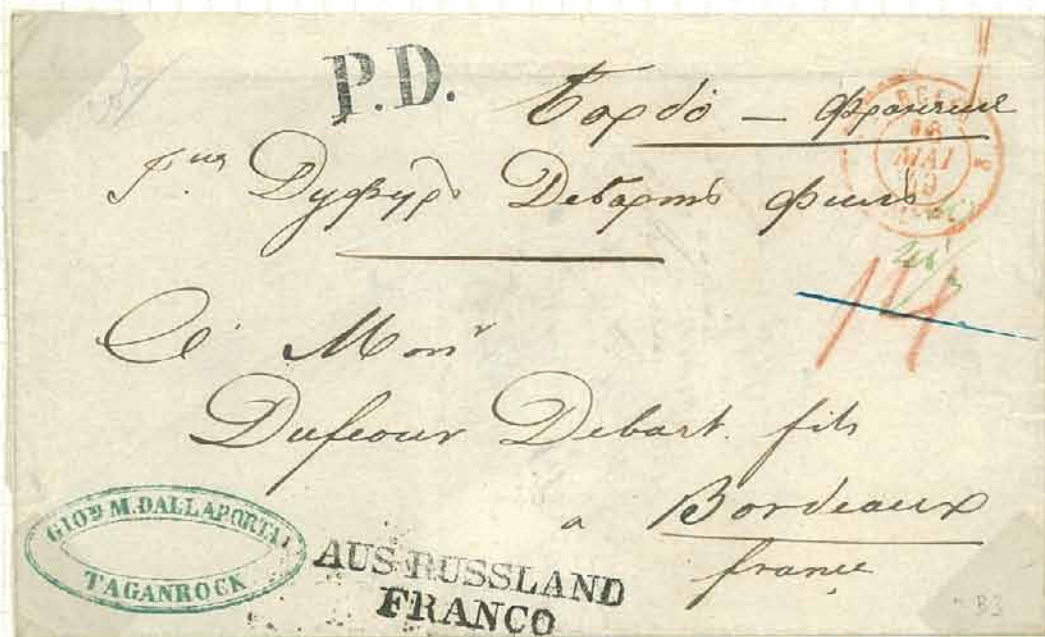 P.D.
Бордо — Франціе
Дуфуръ Дебартъ филсъ
18
MAI
à Monr
Dufour Debart. fils
a Bordeaux
france
GIOn. M. DALLAPORTA.
TAGANROCK
AUS RUSSLAND
FRANCO
B3